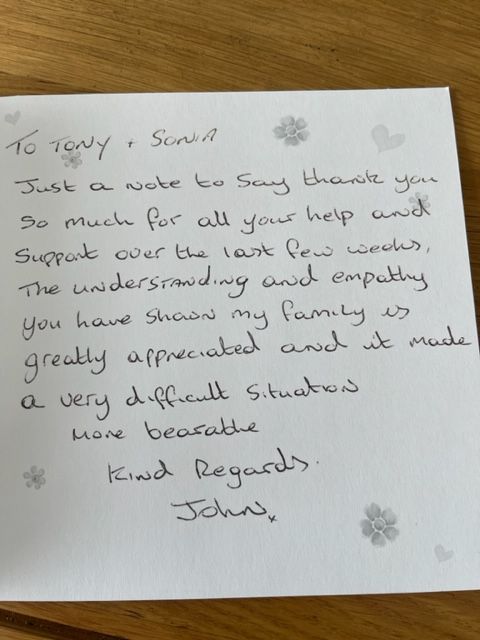 To Tony + Sonia
Just a note to say thank you
so much for all your help and
support over the last few weeks,
The understanding and empathy
you have shown my family is
greatly appreciated and it made
a very difficult situation
more bearable
Kind Regards.
John x